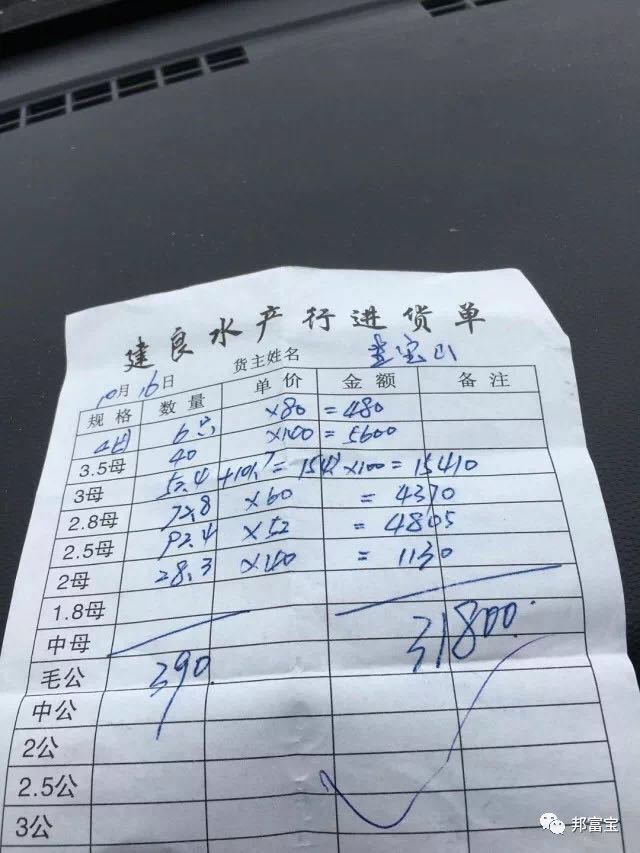 建良水产行进货单
10月16日 货主姓名 宝山
规格 数量 单价 金额 备注
4母 6只 ×80 = 480
3.5母 40 ×140 = 5600
3母 52.4 +101.7 = 154.1 ×100 = 15410
2.8母 72.8 ×60 = 4370
2.5母 92.4 ×52 = 4805
2母 28.3 ×40 = 1130
1.8母
中母
毛公 390. 31800.
中公
2公
2.5公
3公
邦富宝